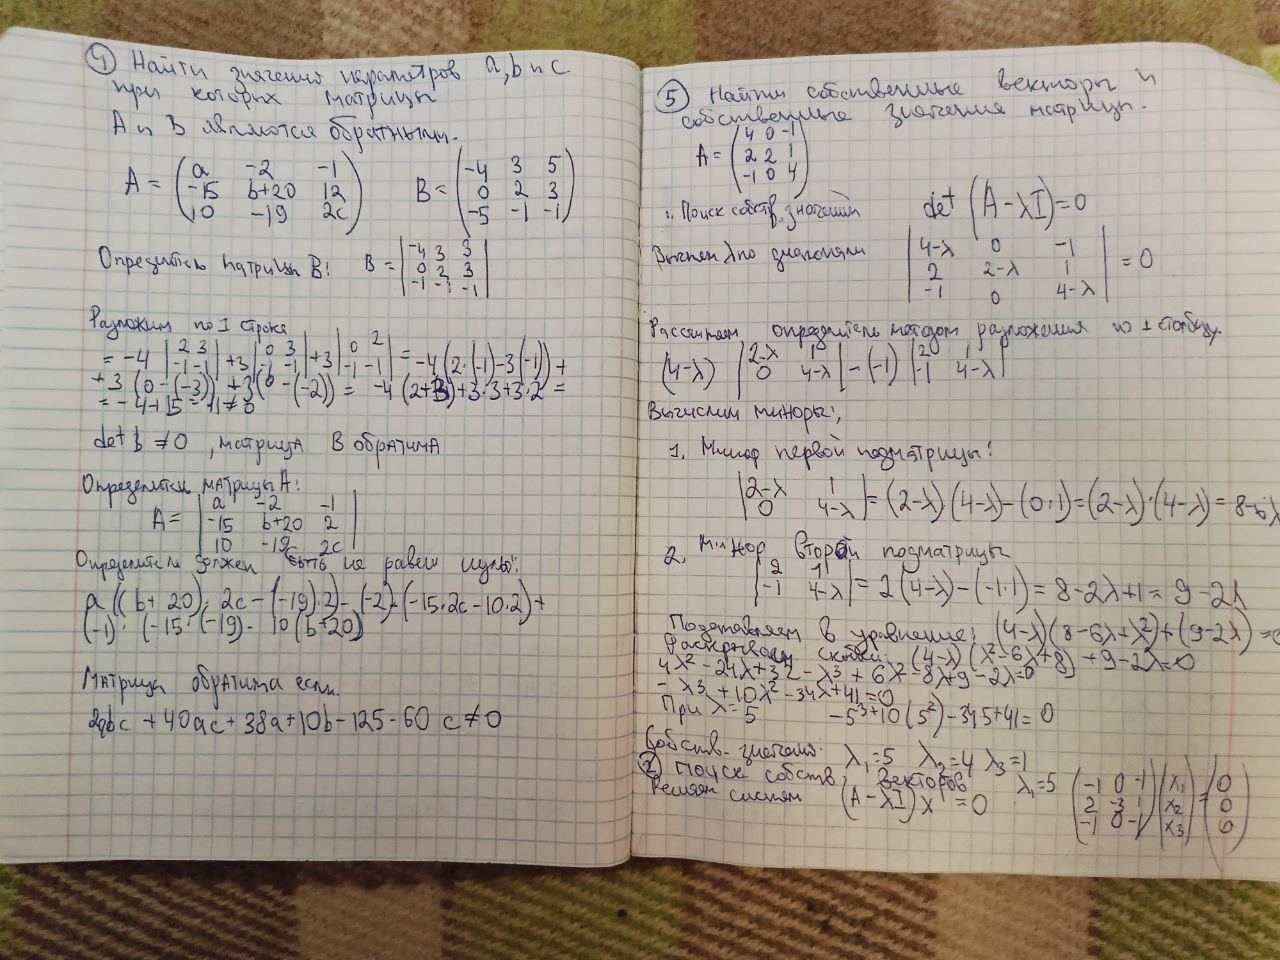 ④ Найти значений параметров a, b и c
при которых матрицы
A и B являются обратными.
A = (a -2 -1
-15 b+20 12
10 -19 2c)
B = (-4 3 5
0 2 3
-5 -1 -1)
Определитель матрицы B: B = |-4 3 3
0 2 3
-1 -1 -1|
Разложим по 1 строке
= -4 |2 3
-1 -1| +3 |0 3
-1 -1| +3 |0 2
-1 -1| = -4(2·(-1)-3(-1))+
+3(0-(-3))+3(0-(-2)) = -4(2+3)+3·3+3·2 =
= -4+15 = 11≠0
det b ≠0, матрица B обратима
Определитель матрицы A:
A = |a -2 -1
-15 b+20 2
10 -19 2c|
Определитель должен быть не равен нулю:
a((b+20)·2c-(-19)·2)-(-2)·(-15·2c-10·2)+
(-1)·(-15·(-19)-10(b+20)
Матрица обратима если.
2abc+40ac+38a+10b-125-60c≠0
⑤ Найти собственные векторы и
собственные значения матрицы.
A = (4 0 -1
2 2 1
-1 0 4)
Поиск собств. значений det(A-λI)=0
λ по диагонали |4-λ 0 -1
2 2-λ 1
-1 0 4-λ| = 0
определитель методом разложения по 1 столбцу.
(4-λ) |2-λ 1
0 4-λ| -(-1) |2 1
-1 4-λ|
Вычислим миноры:
1. Минор первой подматрицы:
|2-λ 1
0 4-λ| = (2-λ)(4-λ)-(0·1)=(2-λ)·(4-λ)=8-6λ
2. Минор второй подматрицы
|2 1
-1 4-λ| = 2(4-λ)-(-1·1)=8-2λ+1=9-2λ
Подставляем в уравнение: (4-λ)(8-6λ+λ²)+(9-2λ)=0
Раскрываем скобки: (4-λ)(λ²-6λ+8)+9-2λ=0
4λ²-24λ+32-λ³+6λ²-8λ+9-2λ=0
-λ³+10λ²-34λ+41=0
При λ=5 -5³+10(5²)-34·5+41=0
Собств. значения: λ₁=5 λ₂=4 λ₃=1
② Поиск собств. векторов λ₁=5 (-1 0 -1
2 -3 1
-1 0 -1) (x₁
x₂
x₃) = (0
0
0)
Решаем систем (A-λI)x=0